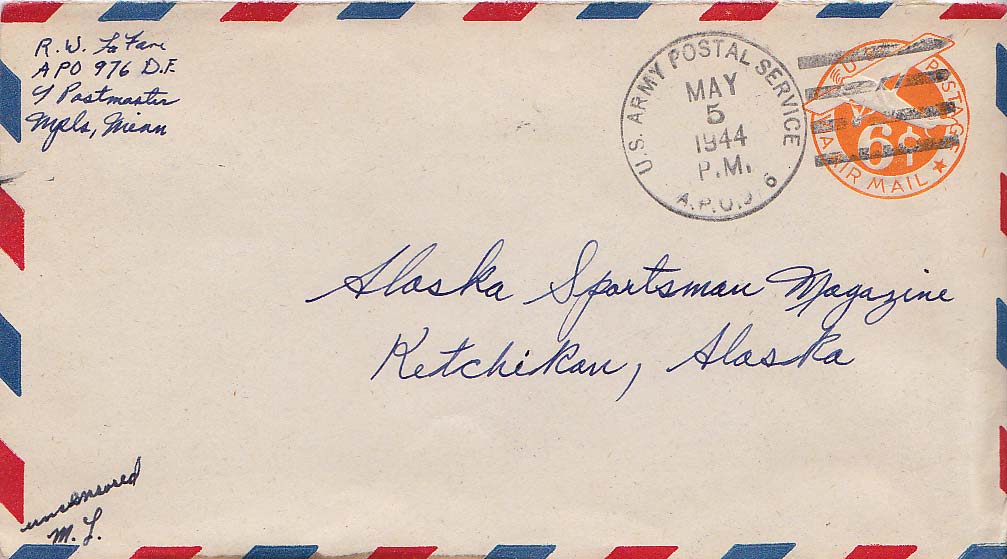 R. W. La Fave
APO 976 D.F.
℅ Postmaster
Mpls, Minn
U.S. ARMY POSTAL SERVICE
MAY
5
1944
P.M.
A.P.O. 6
POSTAGE
6¢
VIA AIR MAIL
Alaska Sportsman Magazine
Ketchikan, Alaska
uncensored
M. L.